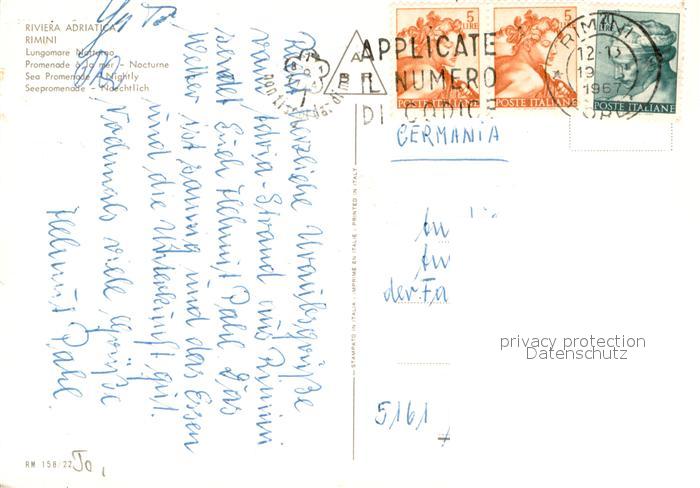 RIVIERA ADRIATICA
RIMINI
Lungomare Notturno
Promenade à la mer - Nocturne
Sea Promenade - Nightly
Seepromenade - Naechtlich
Recht herzliche Urlaubsgrüße
vom Adria-Strand aus Rimini
sendet Euch Helmut Pahl. Das
Wetter ist sonnig und das Essen
und die Unterkunft gut.
Nochmals viele Grüße
Helmut Pahl.
RM 158/22
STAMPATO IN ITALIA - IMPRIME EN ITALIE - PRINTED IN ITALY
5 LIRE
POSTE ITALIANE
5 LIRE
POSTE ITALIANE
LIRE
POSTE ITALIANE
APPLICATE
IL NUMERO
DI CODICE
RIMINI
12-13
19
1967
GERMANIA
An
An
der Fa
5161
privacy protection
Datenschutz